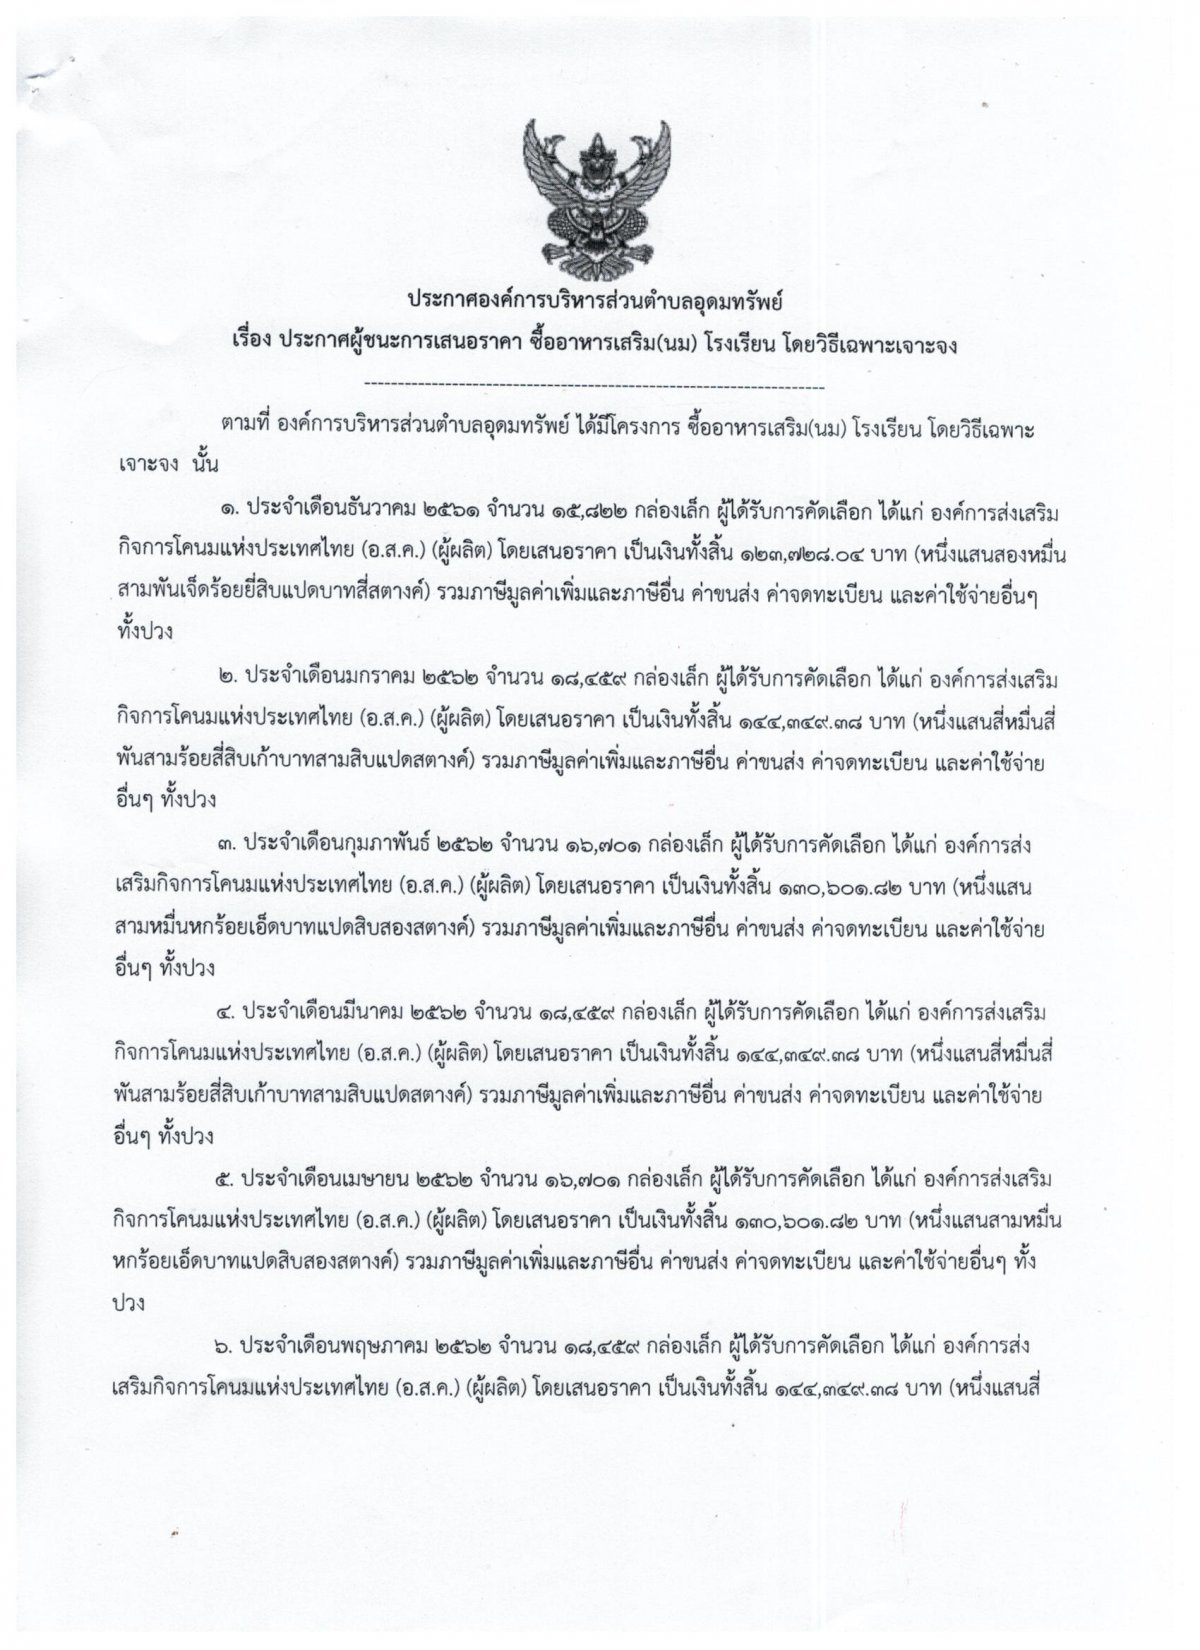 ประกาศองค์การบริหารส่วนตำบลอุดมทรัพย์
เรื่อง ประกาศผู้ชนะการเสนอราคา ซื้ออาหารเสริม(นม) โรงเรียน โดยวิธีเฉพาะเจาะจง
--------------------------------------------------------------------
ตามที่ องค์การบริหารส่วนตำบลอุดมทรัพย์ ได้มีโครงการ ซื้ออาหารเสริม(นม) โรงเรียน โดยวิธีเฉพาะ
เจาะจง นั้น
๑. ประจำเดือนธันวาคม ๒๕๖๑ จำนวน ๑๕,๘๒๒ กล่องเล็ก ผู้ได้รับการคัดเลือก ได้แก่ องค์การส่งเสริม
กิจการโคนมแห่งประเทศไทย (อ.ส.ค.) (ผู้ผลิต) โดยเสนอราคา เป็นเงินทั้งสิ้น ๑๒๓,๗๒๘.๐๔ บาท (หนึ่งแสนสองหมื่น
สามพันเจ็ดร้อยยี่สิบแปดบาทสี่สตางค์) รวมภาษีมูลค่าเพิ่มและภาษีอื่น ค่าขนส่ง ค่าจดทะเบียน และค่าใช้จ่ายอื่นๆ
ทั้งปวง
๒. ประจำเดือนมกราคม ๒๕๖๒ จำนวน ๑๘,๔๕๙ กล่องเล็ก ผู้ได้รับการคัดเลือก ได้แก่ องค์การส่งเสริม
กิจการโคนมแห่งประเทศไทย (อ.ส.ค.) (ผู้ผลิต) โดยเสนอราคา เป็นเงินทั้งสิ้น ๑๔๔,๓๔๙.๓๘ บาท (หนึ่งแสนสี่หมื่นสี่
พันสามร้อยสี่สิบเก้าบาทสามสิบแปดสตางค์) รวมภาษีมูลค่าเพิ่มและภาษีอื่น ค่าขนส่ง ค่าจดทะเบียน และค่าใช้จ่าย
อื่นๆ ทั้งปวง
๓. ประจำเดือนกุมภาพันธ์ ๒๕๖๒ จำนวน ๑๖,๗๐๑ กล่องเล็ก ผู้ได้รับการคัดเลือก ได้แก่ องค์การส่ง
เสริมกิจการโคนมแห่งประเทศไทย (อ.ส.ค.) (ผู้ผลิต) โดยเสนอราคา เป็นเงินทั้งสิ้น ๑๓๐,๖๐๑.๘๒ บาท (หนึ่งแสน
สามหมื่นหกร้อยเอ็ดบาทแปดสิบสองสตางค์) รวมภาษีมูลค่าเพิ่มและภาษีอื่น ค่าขนส่ง ค่าจดทะเบียน และค่าใช้จ่าย
อื่นๆ ทั้งปวง
๔. ประจำเดือนมีนาคม ๒๕๖๒ จำนวน ๑๘,๔๕๙ กล่องเล็ก ผู้ได้รับการคัดเลือก ได้แก่ องค์การส่งเสริม
กิจการโคนมแห่งประเทศไทย (อ.ส.ค.) (ผู้ผลิต) โดยเสนอราคา เป็นเงินทั้งสิ้น ๑๔๔,๓๔๙.๓๘ บาท (หนึ่งแสนสี่หมื่นสี่
พันสามร้อยสี่สิบเก้าบาทสามสิบแปดสตางค์) รวมภาษีมูลค่าเพิ่มและภาษีอื่น ค่าขนส่ง ค่าจดทะเบียน และค่าใช้จ่าย
อื่นๆ ทั้งปวง
๕. ประจำเดือนเมษายน ๒๕๖๒ จำนวน ๑๖,๗๐๑ กล่องเล็ก ผู้ได้รับการคัดเลือก ได้แก่ องค์การส่งเสริม
กิจการโคนมแห่งประเทศไทย (อ.ส.ค.) (ผู้ผลิต) โดยเสนอราคา เป็นเงินทั้งสิ้น ๑๓๐,๖๐๑.๘๒ บาท (หนึ่งแสนสามหมื่น
หกร้อยเอ็ดบาทแปดสิบสองสตางค์) รวมภาษีมูลค่าเพิ่มและภาษีอื่น ค่าขนส่ง ค่าจดทะเบียน และค่าใช้จ่ายอื่นๆ ทั้ง
ปวง
๖. ประจำเดือนพฤษภาคม ๒๕๖๒ จำนวน ๑๘,๔๕๙ กล่องเล็ก ผู้ได้รับการคัดเลือก ได้แก่ องค์การส่ง
เสริมกิจการโคนมแห่งประเทศไทย (อ.ส.ค.) (ผู้ผลิต) โดยเสนอราคา เป็นเงินทั้งสิ้น ๑๔๔,๓๔๙.๓๘ บาท (หนึ่งแสนสี่